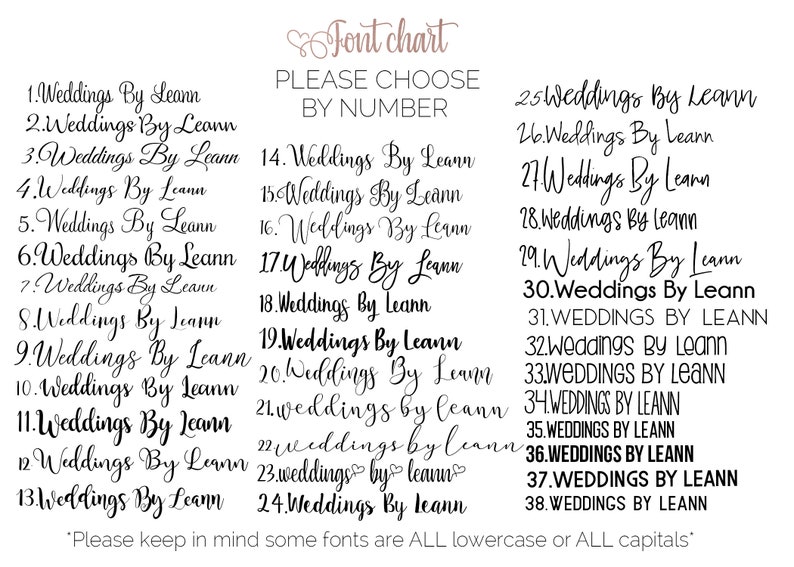 Font chart
PLEASE CHOOSE
BY NUMBER
1.Weddings By Leann
2.Weddings By Leann
3.Weddings By Leann
4.Weddings By Leann
5.Weddings By Leann
6.Weddings By Leann
7.Weddings By Leann
8.Weddings By Leann
9.Weddings By Leann
10.Weddings By Leann
11.Weddings By Leann
12.Weddings By Leann
13.Weddings By Leann
14.Weddings By Leann
15.Weddings By Leann
16.Weddings By Leann
17.Weddings By Leann
18.Weddings By Leann
19.Weddings By Leann
20.Weddings By Leann
21.weddings by leann
22.weddings by leann
23.weddings♡ by♡ leann♡
24.Weddings By Leann
25.Weddings By Leann
26.Weddings By Leann
27.Weddings By Leann
28.Weddings By Leann
29.Weddings By Leann
30.Weddings By Leann
31.WEDDINGS BY LEANN
32.Weddings By Leann
33.Weddings By Leann
34.WEDDINGS BY LEANN
35.WEDDINGS BY LEANN
36.WEDDINGS BY LEANN
37.WEDDINGS BY LEANN
38.WEDDINGS BY LEANN
*Please keep in mind some fonts are ALL lowercase or ALL capitals*